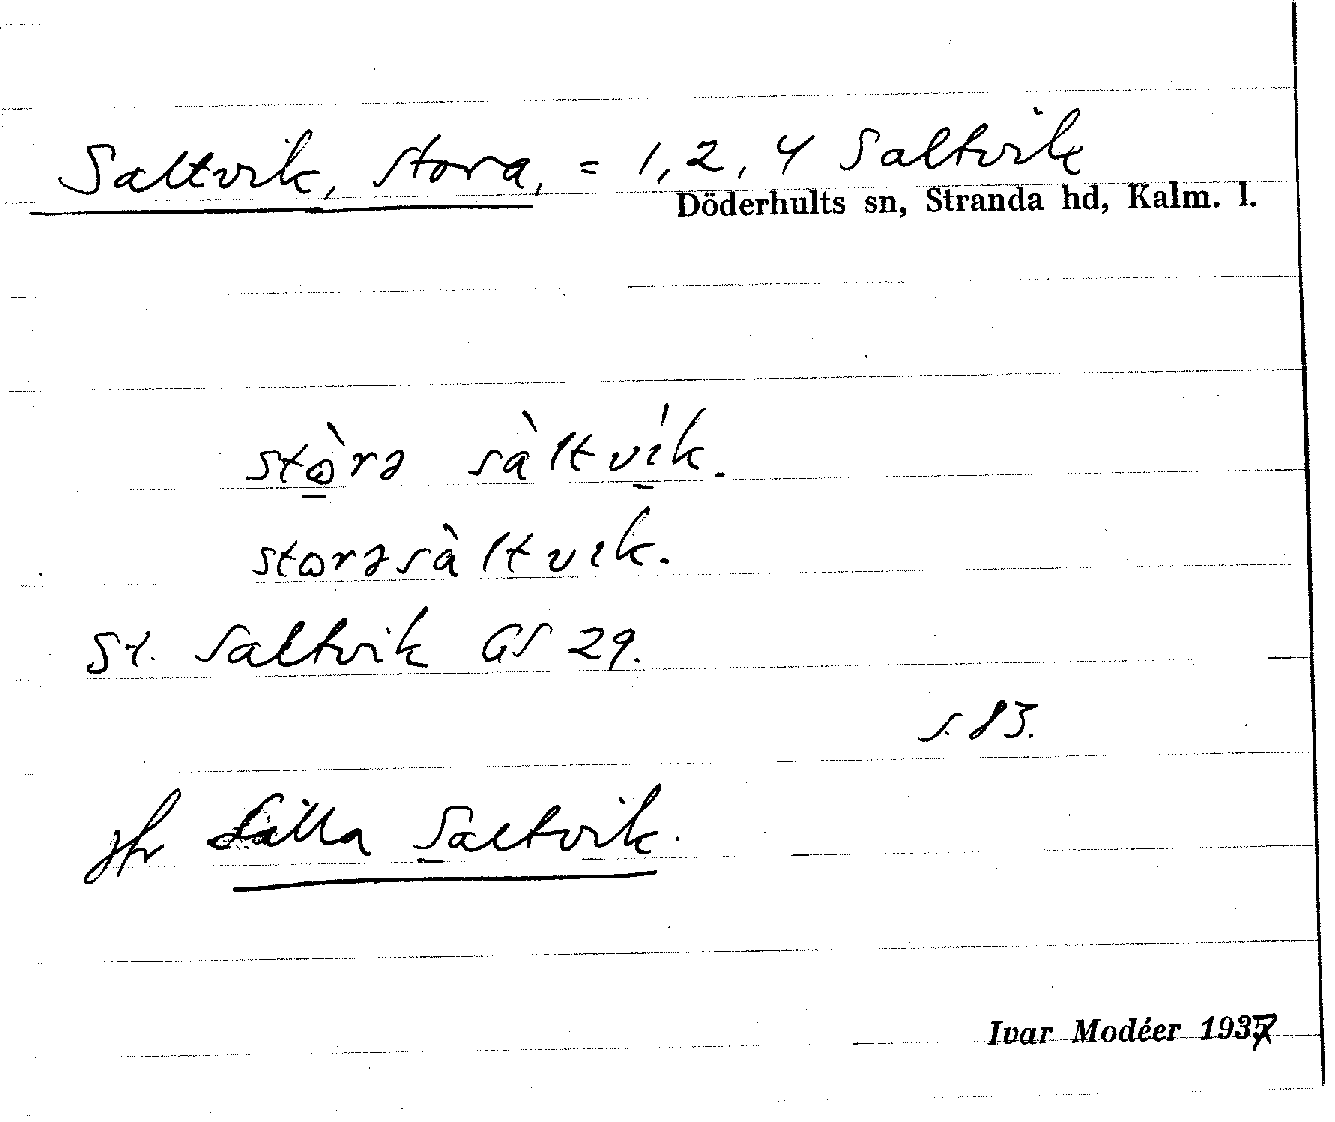 Saltvik, Stora, = 1, 2, 4 Saltvik
Döderhults sn, Stranda hd, Kalm. l.
stɷ̀rə sàltvík.
stɷrəsàltvik.
St. Saltvik GS 29.
s. 83.
jfr Lilla Saltvik.
Ivar Modéer 1937